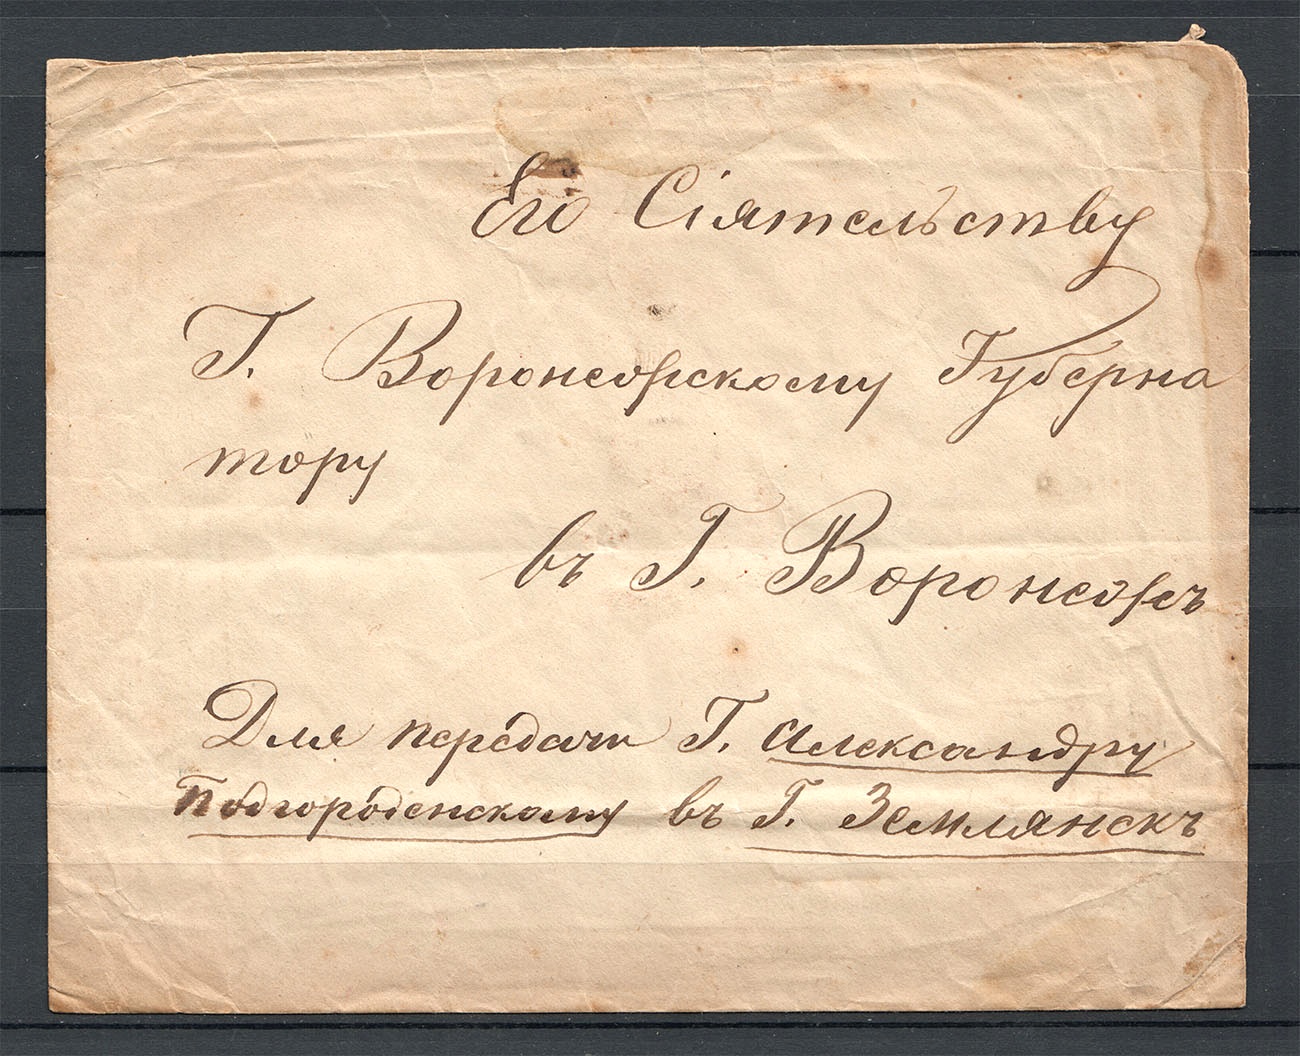 Его Сіятельству
Г. Воронежскому Губерна
тору
въ Г. Воронежъ
Для передачи Г. Александру
Подгороденскому въ Г. Землянскъ